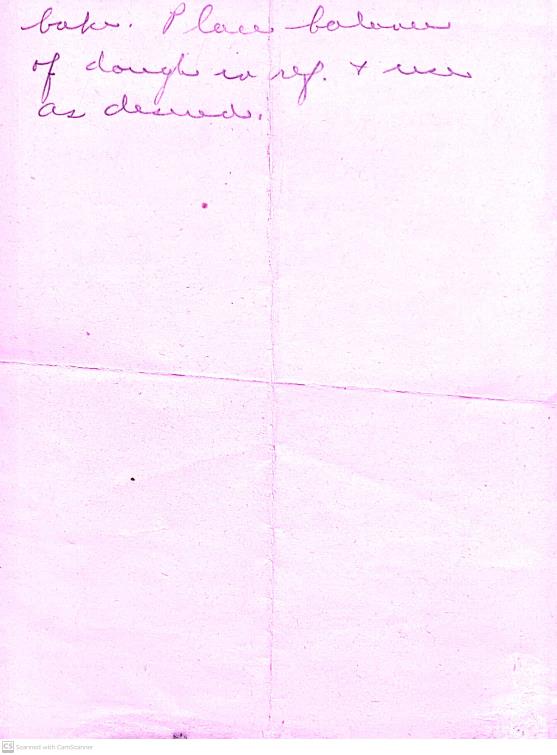 bake. Place balance
of dough in ref. + use
as desired.
CS Scanned with CamScanner